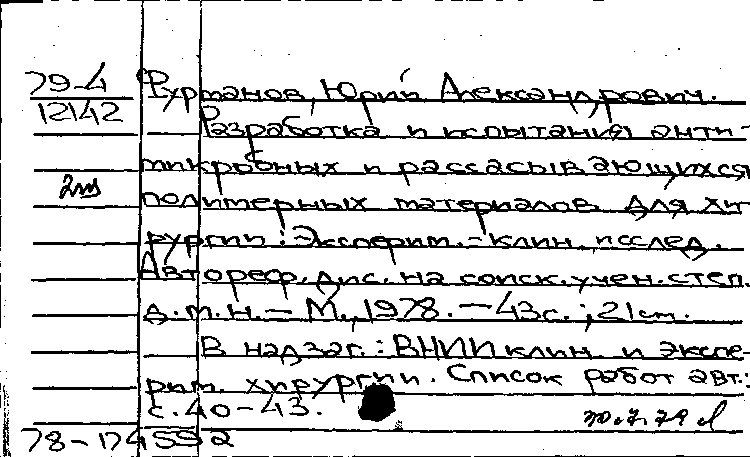 79-4
12142
2ш
Фурманов, Юрий Александрович.
Разработка и испытания анти-
микробных и рассасывающихся
полимерных материалов для хи-
рургии: Эксперим.-клин. исслед.
Автореф. дис. на соиск. учен. степ.
д.м.н. - М., 1978. - 43с.; 21см.
В надзаг.: ВНИИ клин. и экспе-
рим. хирургии. Список работ авт.:
с. 40-43.
78-174592